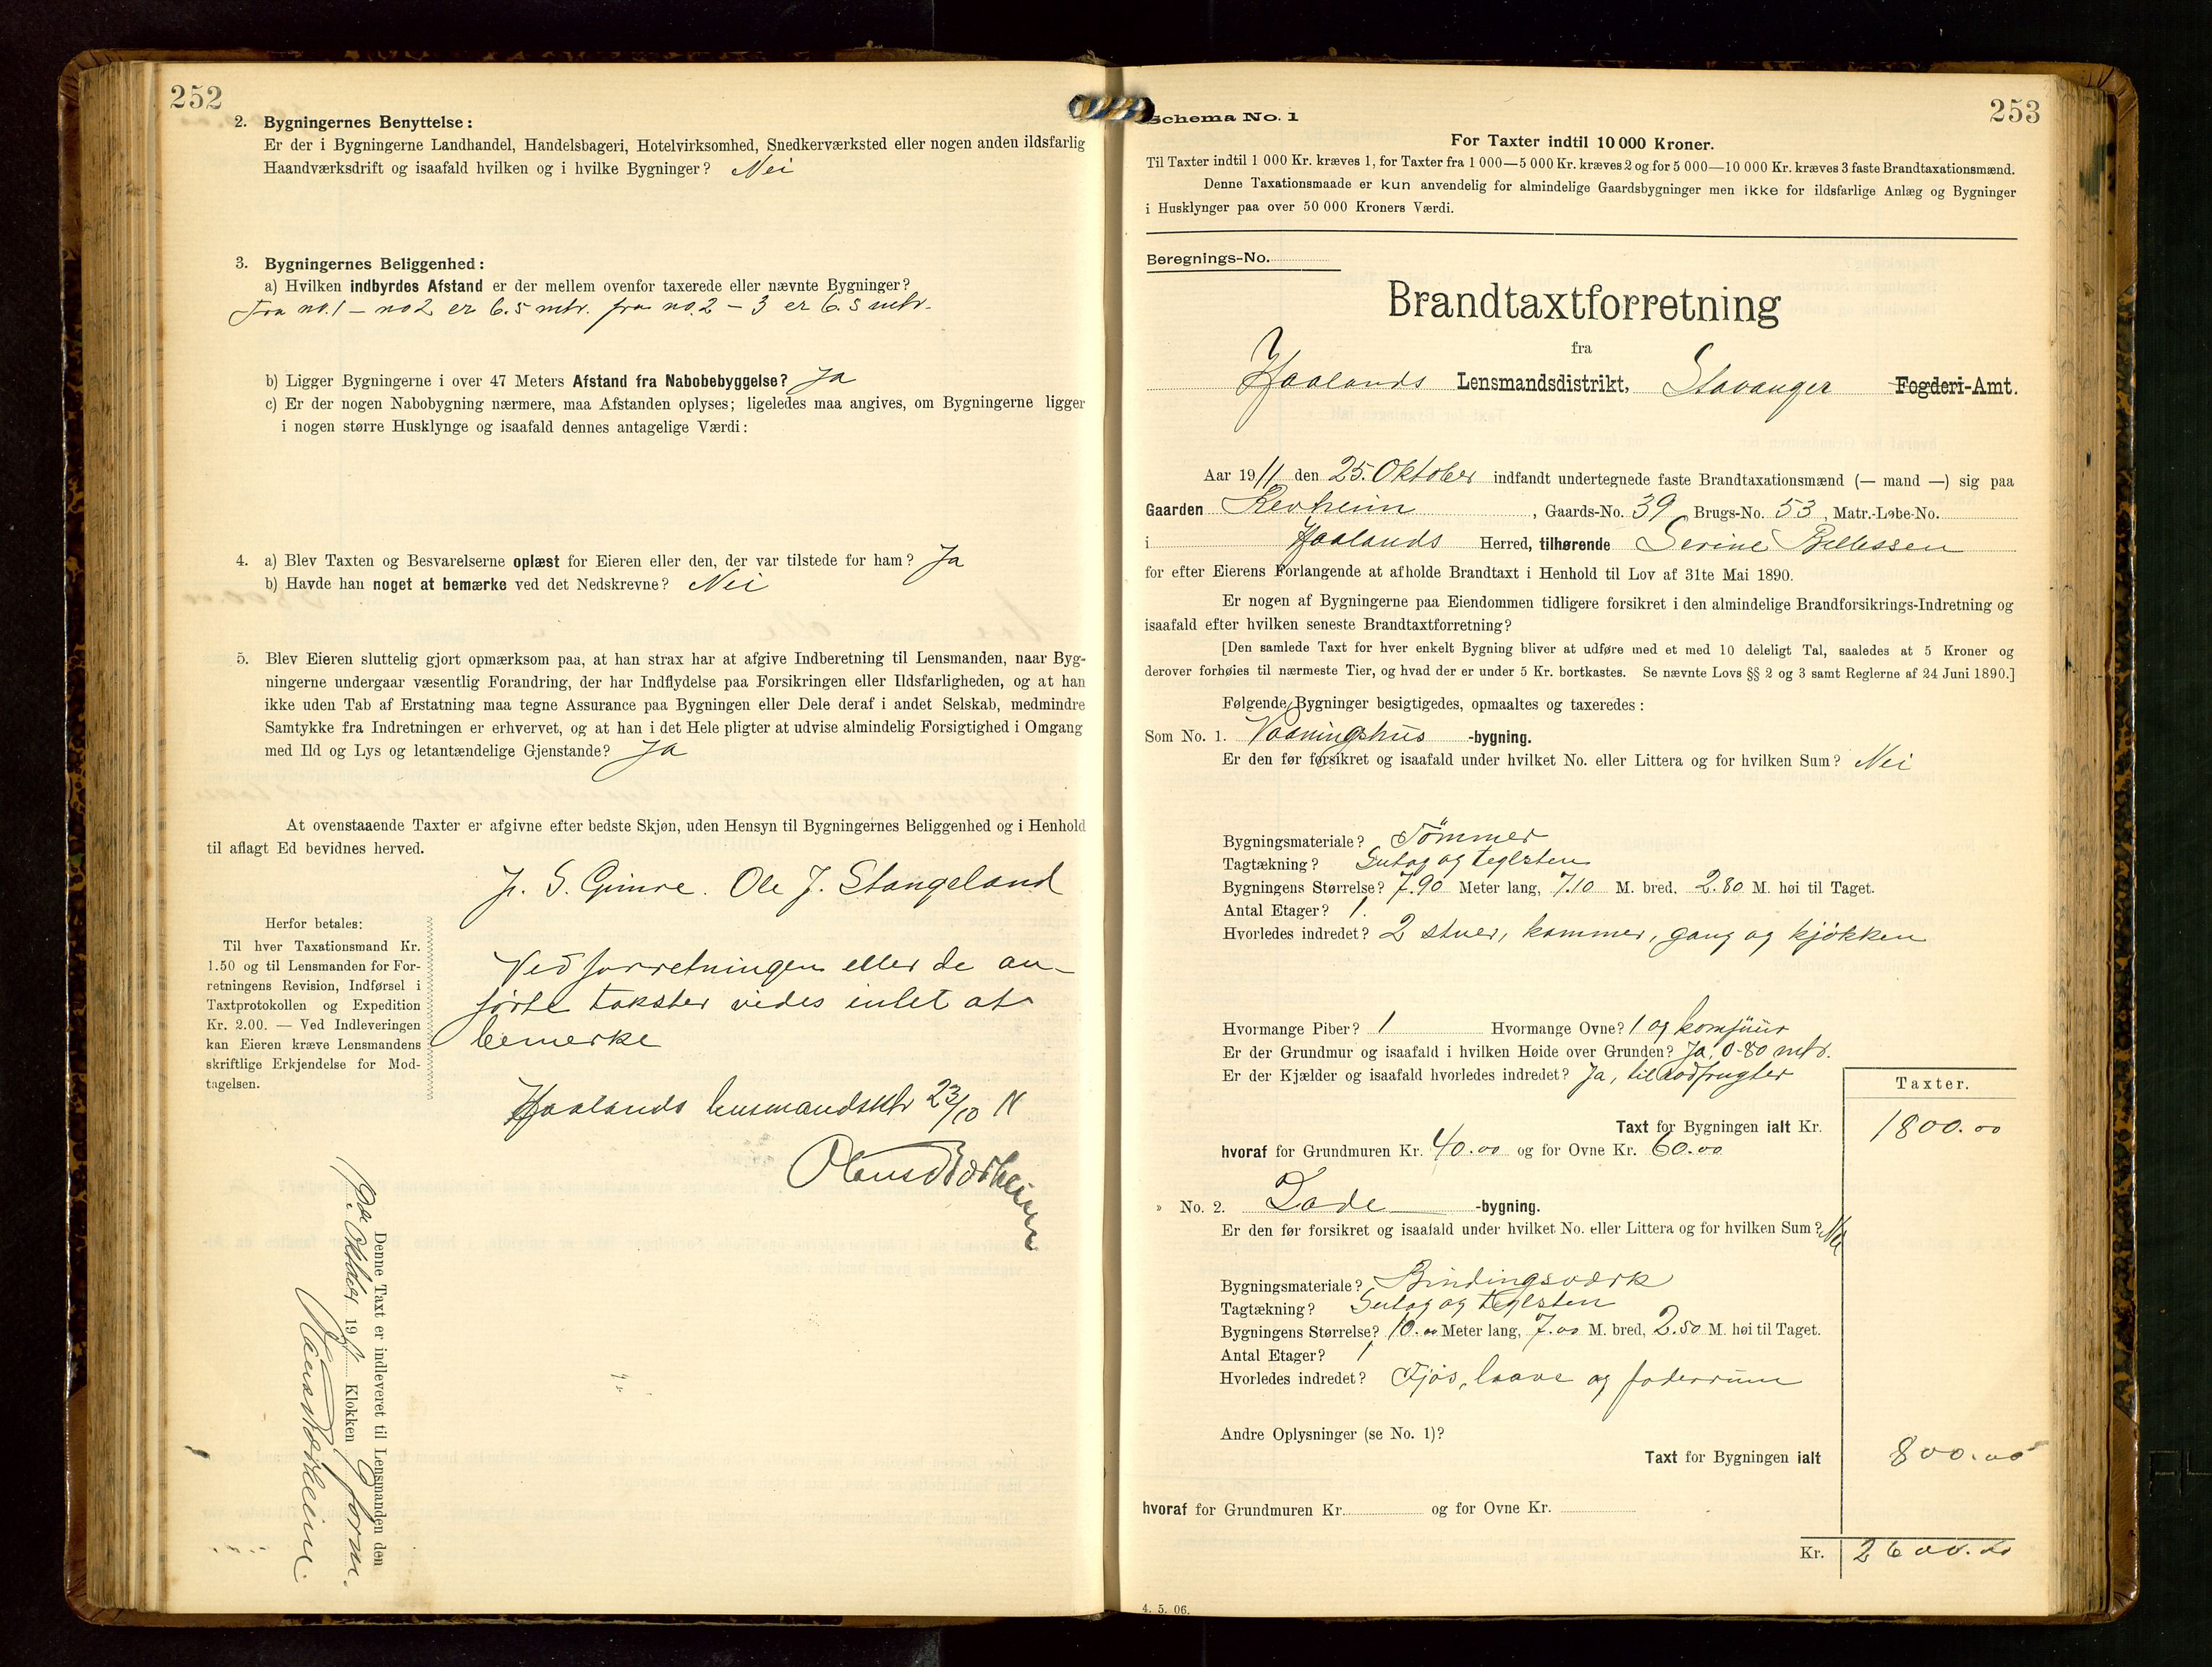 252
2. Bygningernes Benyttelse:
Er der i Bygningerne Landhandel, Handelsbageri, Hotelvirksomhed, Snedkerværksted eller nogen anden ildsfarlig
Haandværksdrift og isaafald hvilken og i hvilke Bygninger? Nei
3. Bygningernes Beliggenhed:
a) Hvilken indbyrdes Afstand er der mellem ovenfor taxerede eller nævnte Bygninger?
Fra no. 1 – no 2 er 6.5 mtr. fra no. 2 – 3 er 6.5 mtr.
b) Ligger Bygningerne i over 47 Meters Afstand fra Nabobebyggelse? Ja
c) Er der nogen Nabobygning nærmere, maa Afstanden oplyses; ligeledes maa angives, om Bygningerne ligger
i nogen større Husklynge og isaafald dennes antagelige Værdi:
4. a) Blev Taxten og Besvarelserne oplæst for Eieren eller den, der var tilstede for ham? Ja
b) Havde han noget at bemærke ved det Nedskrevne? Nei
5. Blev Eieren sluttelig gjort opmærksom paa, at han strax har at afgive Indberetning til Lensmanden, naar Byg-
ningerne undergaar væsentlig Forandring, der har Indflydelse paa Forsikringen eller Ildsfarligheden, og at han
ikke uden Tab af Erstatning maa tegne Assurance paa Bygningen eller Dele deraf i andet Selskab, medmindre
Samtykke fra Indretningen er erhvervet, og at han i det Hele pligter at udvise almindelig Forsigtighed i Omgang
med Ild og Lys og letantændelige Gjenstande? Ja
At ovenstaaende Taxter er afgivne efter bedste Skjøn, uden Hensyn til Bygningernes Beliggenhed og i Henhold
til aflagt Ed bevidnes herved.
J. S. Gimre. Ole J. Stangeland
Herfor betales:
Til hver Taxationsmand Kr.
1.50 og til Lensmanden for For-
retningens Revision, Indførsel i
Taxtprotokollen og Expedition
Kr. 2.00. — Ved Indleveringen
kan Eieren kræve Lensmandens
skriftlige Erkjendelse for Mod-
tagelsen.
Ved forretningen eller de an-
førte takster vides intet at
bemerke
Haalands lensmandsktr 23/10 11
Denne Taxt er indleveret til Lensmanden den
Oktober 19 11 Klokken 9 form.
253
Schema No. 1
For Taxter indtil 10 000 Kroner.
Til Taxter indtil 1 000 Kr. kræves 1, for Taxter fra 1 000—5 000 Kr. kræves 2 og for 5 000—10 000 Kr. kræves 3 faste Brandtaxationsmænd.
Denne Taxationsmaade er kun anvendelig for almindelige Gaardsbygninger men ikke for ildsfarlige Anlæg og Bygninger
i Husklynger paa over 50 000 Kroners Værdi.
Beregnings-No.
Brandtaxtforretning
fra
Haalands Lensmandsdistrikt, Stavanger Fogderi-Amt.
Aar 1911 den 25. Oktober indfandt undertegnede faste Brandtaxationsmænd (— mand —) sig paa
Gaarden Revheim, Gaards-No. 39 Brugs-No. 53, Matr.-Løbe-No.
i Haalands Herred, tilhørende Serine
for efter Eierens Forlangende at afholde Brandtaxt i Henhold til Lov af 31te Mai 1890.
Er nogen af Bygningerne paa Eiendommen tidligere forsikret i den almindelige Brandforsikrings-Indretning og
isaafald efter hvilken seneste Brandtaxtforretning?
[Den samlede Taxt for hver enkelt Bygning bliver at udføre med et med 10 deleligt Tal, saaledes at 5 Kroner og
derover forhøies til nærmeste Tier, og hvad der er under 5 Kr. bortkastes. Se nævnte Lovs §§ 2 og 3 samt Reglerne af 24 Juni 1890.]
Følgende Bygninger besigtigedes, opmaaltes og taxeredes:
Som No. 1. Vaaningshus -bygning.
Er den før forsikret og isaafald under hvilket No. eller Littera og for hvilken Sum? Nei
Bygningsmateriale? Tömmer
Tagtækning? Sutag og teglsten
Bygningens Størrelse? 7.90 Meter lang, 7.10 M. bred, 2.80 M. høi til Taget.
Antal Etager? 1.
Hvorledes indredet? 2 stuer, kammer, gang og kjøkken
Hvormange Piber? 1 Hvormange Ovne? 1 og komfüür
Er der Grundmur og isaafald i hvilken Høide over Grunden? Ja, 0-80 mtr.
Er der Kjælder og isaafald hvorledes indredet? Ja, til rodfrugter
Taxter.
Taxt for Bygningen ialt Kr. 1800.00
hvoraf for Grundmuren Kr. 40.00 og for Ovne Kr. 60.00
» No. 2. Lade -bygning.
Er den før forsikret og isaafald under hvilket No. eller Littera og for hvilken Sum? Nei
Bygningsmateriale? Bindingsværk
Tagtækning? Sutag og teglsten
Bygningens Størrelse? 10.00 Meter lang, 7.00 M. bred, 2.50 M. høi til Taget.
Antal Etager? 1
Hvorledes indredet? Fjøs, laave og foderrum
Andre Oplysninger (se No. 1)?
Taxt for Bygningen ialt 800.00
hvoraf for Grundmuren Kr. og for Ovne Kr.
Kr. 2600.00
4. 5. 06.